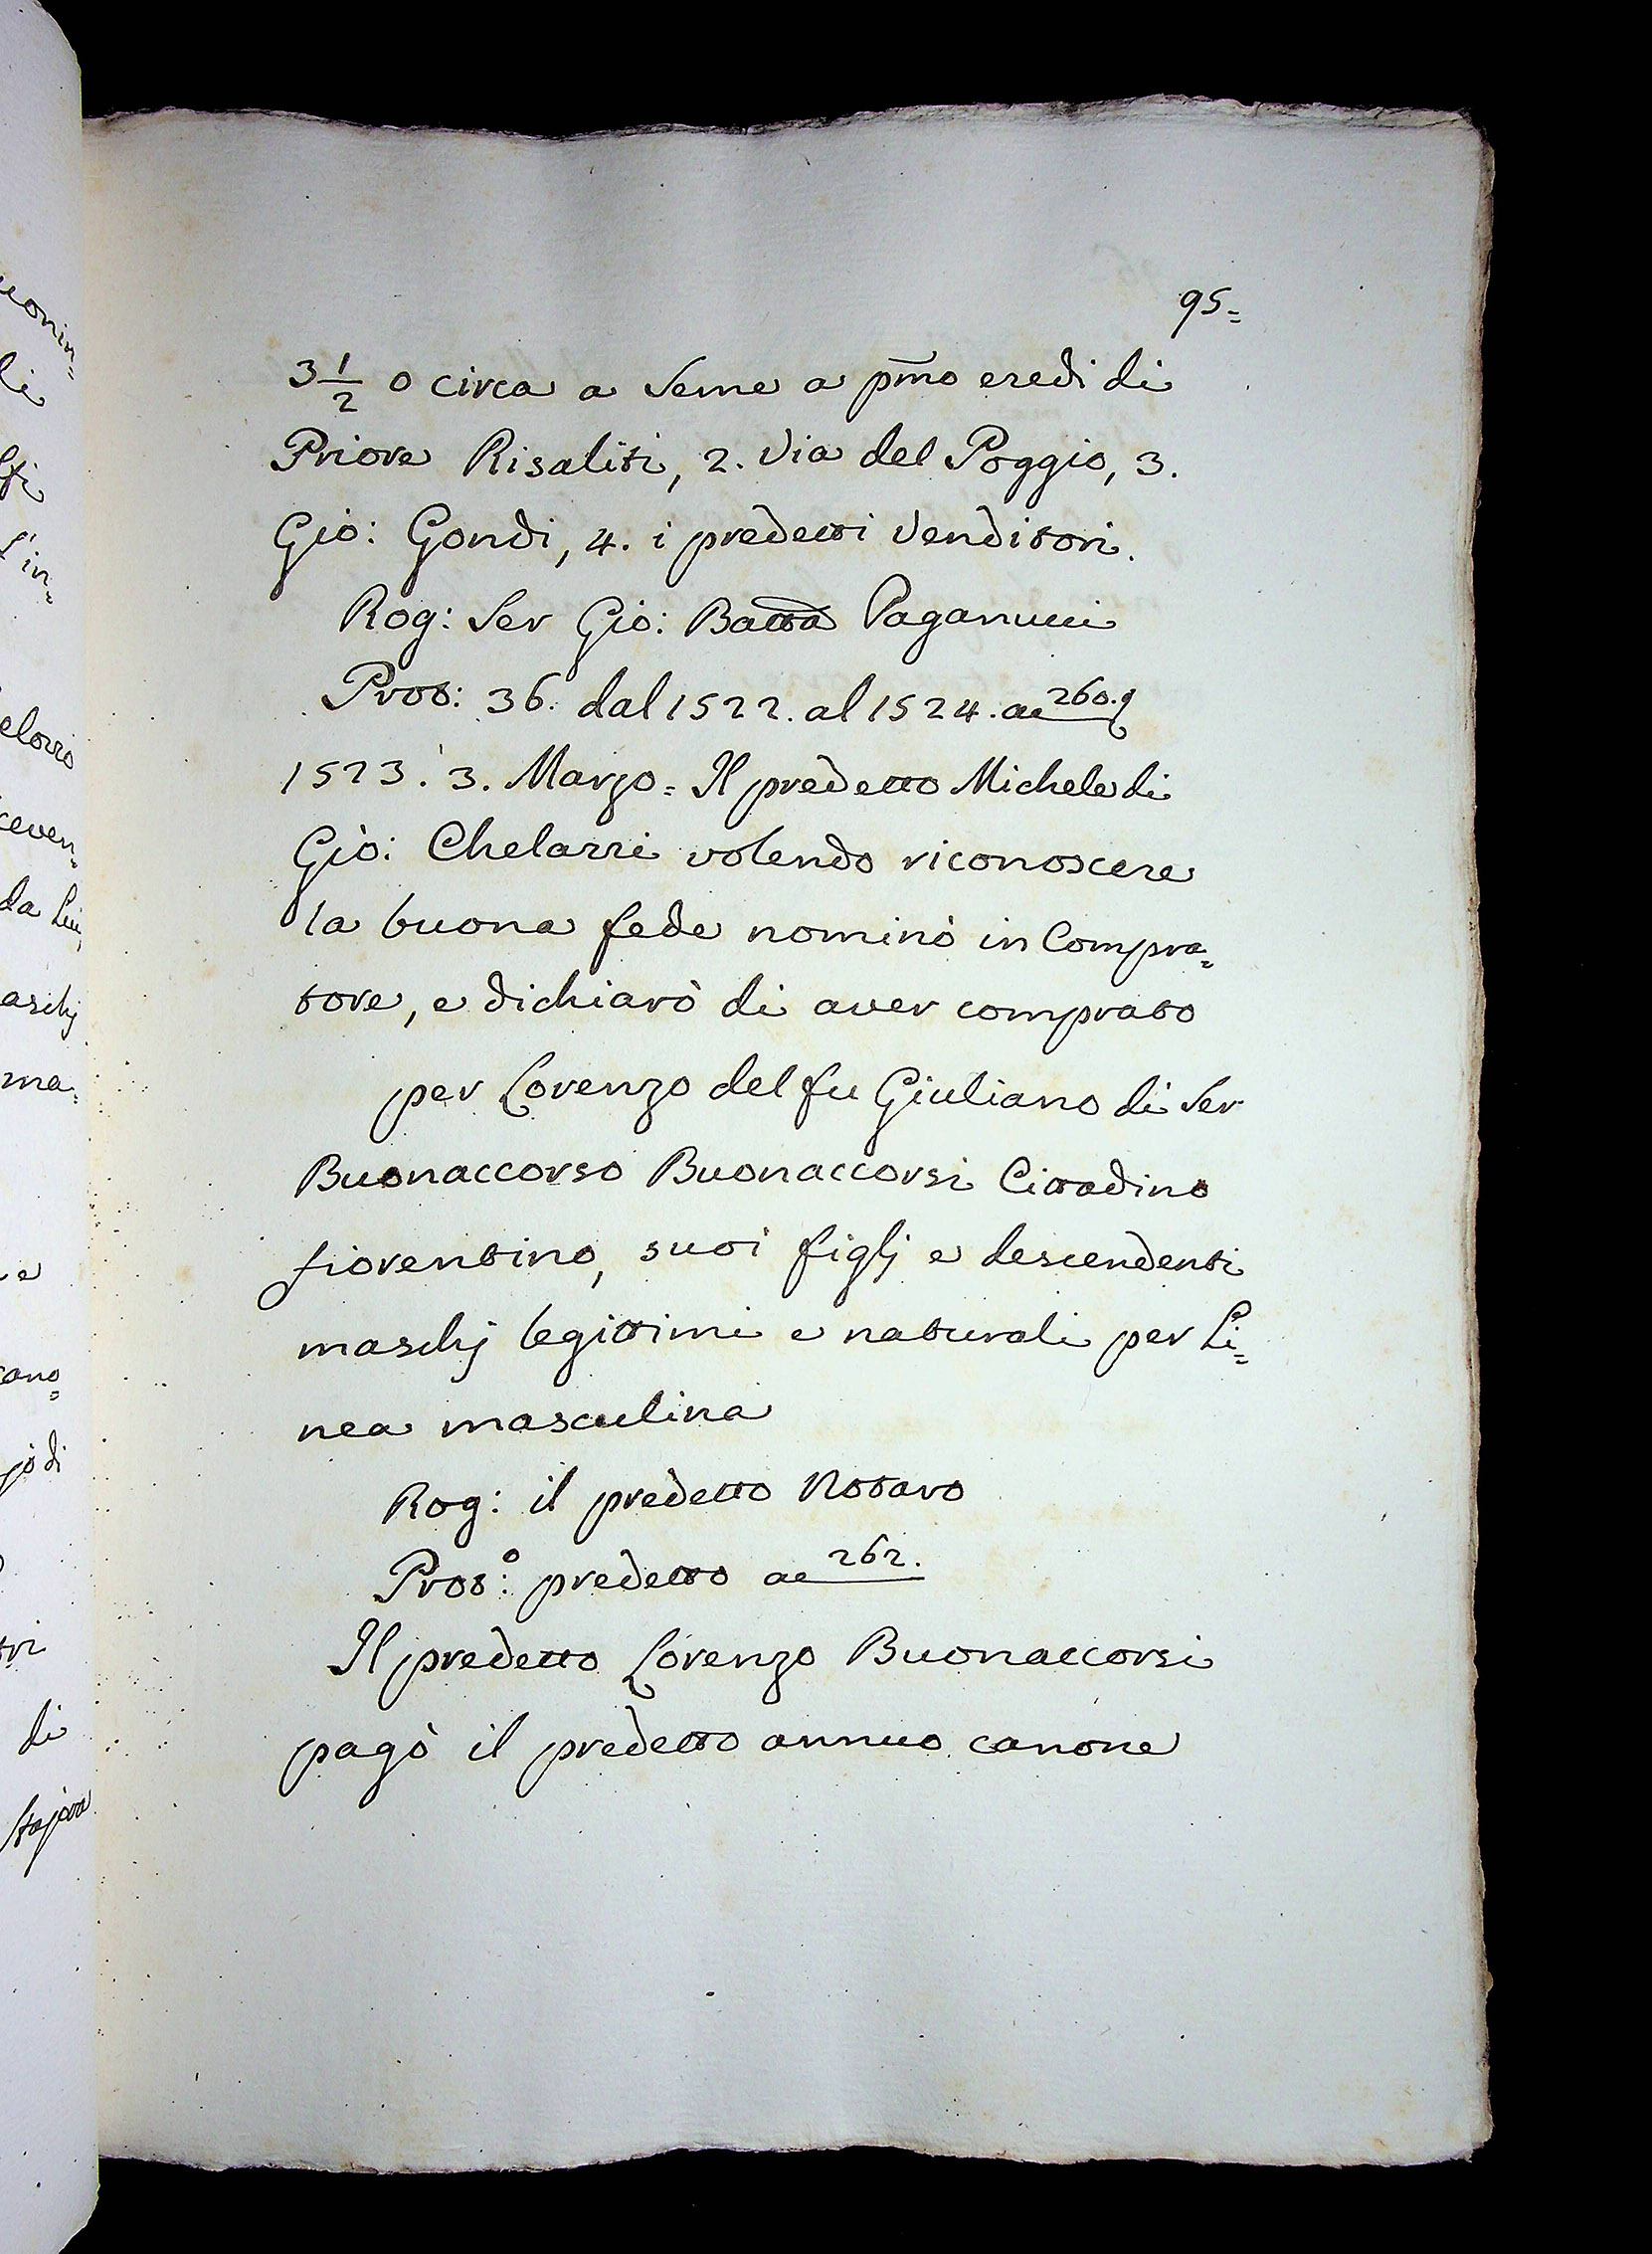 95=
3 1/2 o circa a seme a pm̃o eredi di
Priore Risaliti, 2. Via del Poggio, 3.
Gio: Gondi, 4. i predetti Venditori.
Rog: Ser Gio: Batta Paganucci
Prot: 36. dal 1522. al 1524. ac 260.
1523. 3. Marzo = Il predetto Michele di
Gio: Chelazzi volendo riconoscere
la buona fede nominò in Compra=
tore, e dichiarò di aver comprato
per Lorenzo del fu Giuliano di Ser
Buonaccorso Buonaccorsi Cittadino
fiorentino, suoi figlj e descendenti
maschj legittimi e naturali per Li=
nea masculina
Rog: il predetto Notaro
Prot:o predetto ac 262.
Il predetto Lorenzo Buonaccorsi
pagò il predetto annuo canone